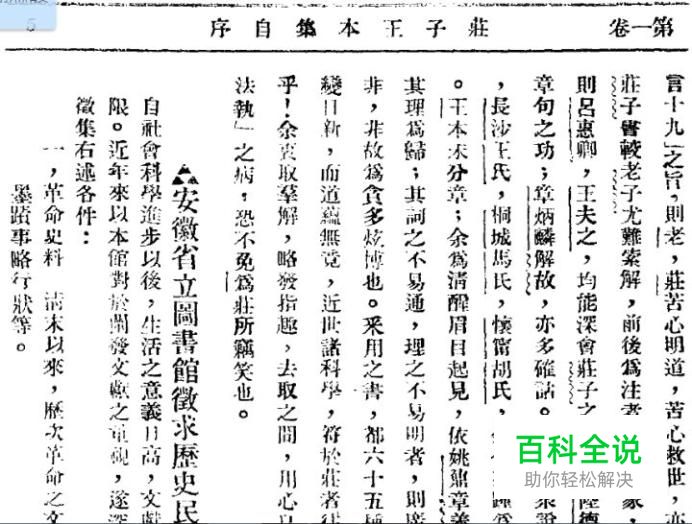 第一卷
莊子王本集自序
5
言十九」之旨，則老，莊苦心明道，苦心救世，亦
莊子書較老子尤難索解，前後爲注者
家，
則呂惠卿，王夫之，均能深會莊子之
陸德
章句之功；章炳麟解故，亦多確詁。
，長沙王氏，桐城馬氏，懷甯胡氏，
。王本未分章；余爲清醒眉目起見，依姚鼐章義
其理爲歸；其詞之不易通，理之不易明者，則廣
非，非故爲貪多炫博也。釆用之書，都六十五種
變日新，而道蘊無竟，近世諸科學，符於莊者往
乎！余裒取羣解，略發指趣，去取之間，用心
法執」之病，恐不免爲莊所竊笑也。
安徽省立圖書館徵求歷史民
自社會科學進步以後，生活之意義日高，文獻
限。近年來以本館對於闡發文獻之重視，遂深
徵集右述各件：
一，革命史料 清末以來，歷次革命之文
墨蹟事略行狀等。
百科全说
助你轻松解决